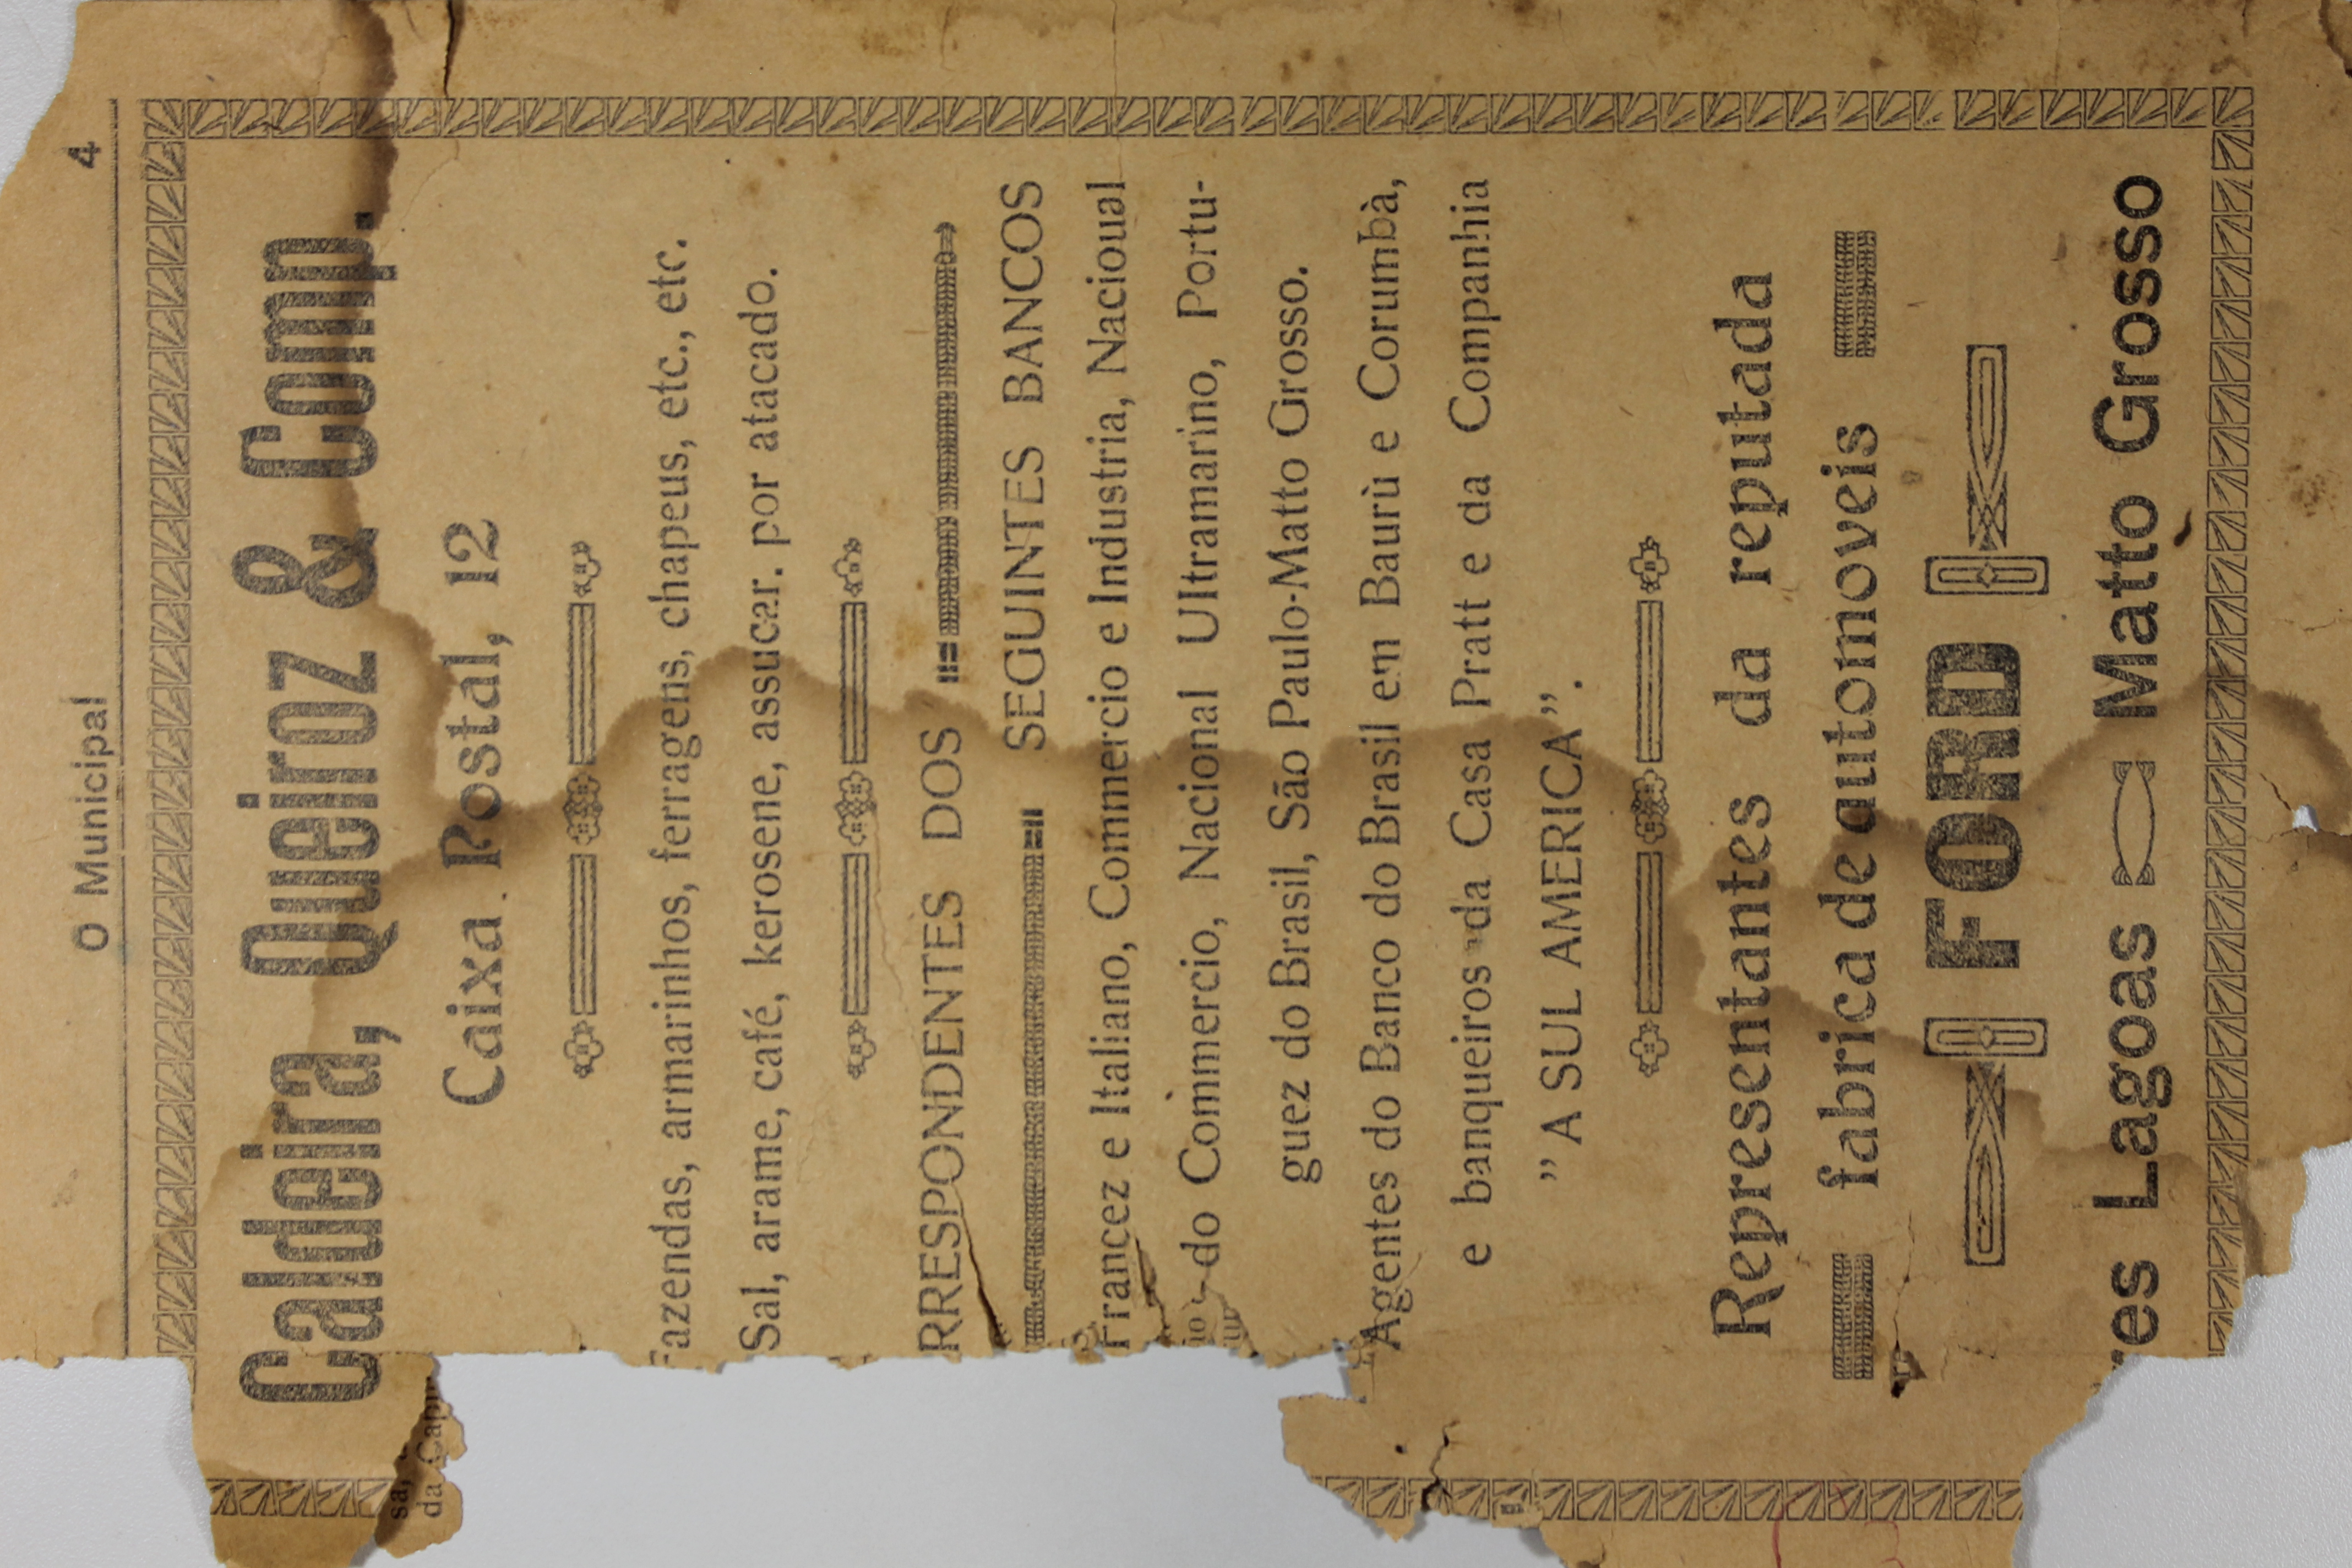 O Municipal 4
Caldeira, Queiroz & Comp.
Caixa Postal, 12
Fazendas, armarinhos, ferragens, chapeus, etc., etc.
Sal, arame, café, kerosene, assucar. por atacado.
RRESPONDENTES DOS
SEGUINTES BANCOS
Francez e Italiano, Commercio e Industria, Nacioual
do Commercio, Nacional Ultramarino, Portu-
guez do Brasil, São Paulo-Matto Grosso.
Agentes do Banco do Brasil em Baurù e Corumbà,
e banqueiros da Casa Pratt e da Companhia
” A SUL AMERICA”.
Representantes da reputada
fabrica de automoveis
FORD
res Lagoas Matto Grosso